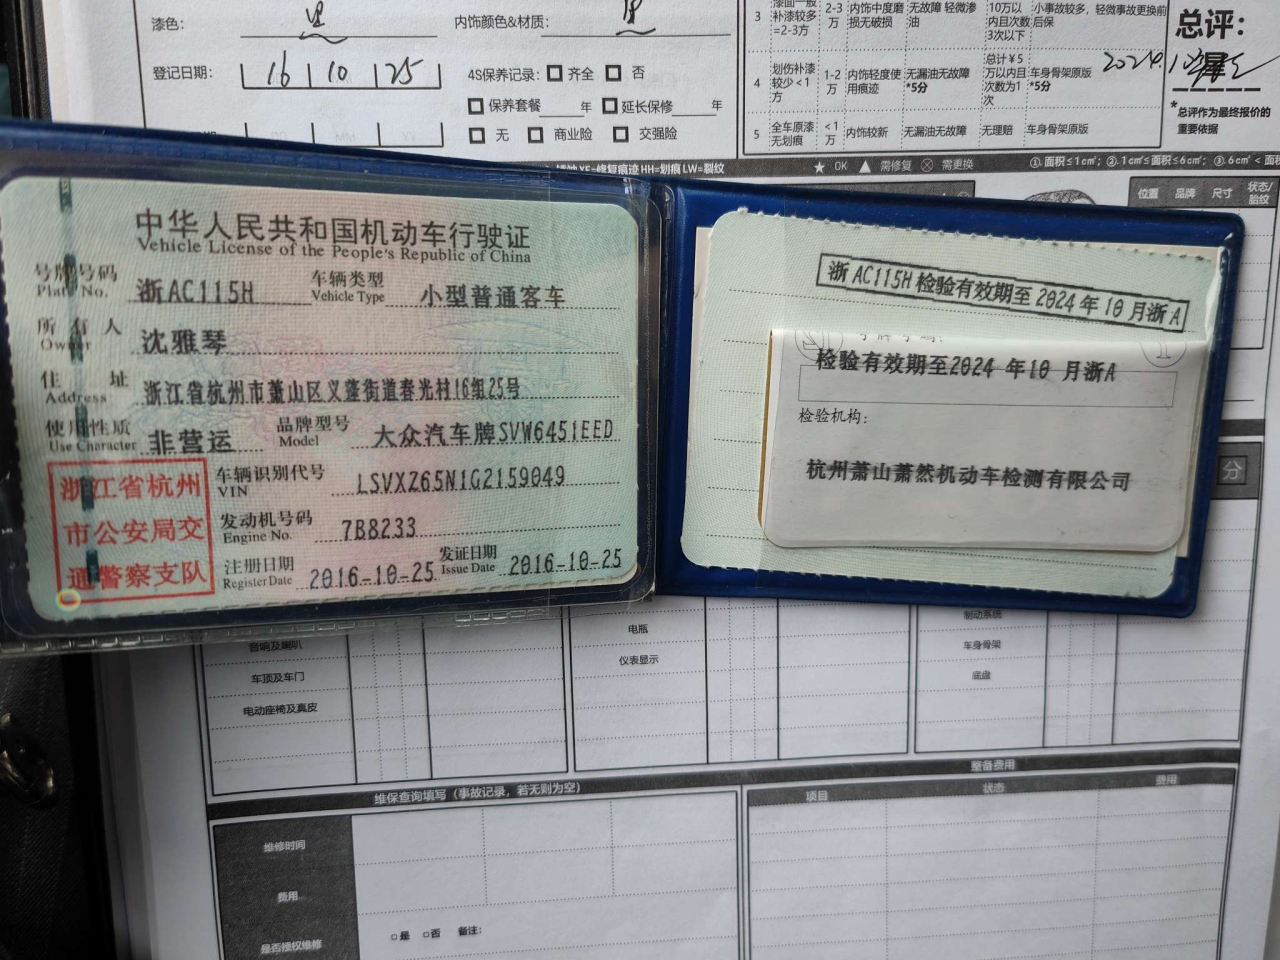 漆色:
内饰颜色&材质:
登记日期: 16 10 25
4S保养记录: 齐全 否
保养套餐 年 延长保修 年
无 商业险 交强险
3 漆面一般补漆较多=2-3方 2-3万 内饰中度磨损无破损 无故障 轻微渗油 10万以内且次数3次以下 小事故较多，轻微事故更换前后保
4 划伤补漆较少<1方 1-2万 内饰轻度使用痕迹 无漏油无故障*5分 总计￥5万以内且次数为1次 车身骨架原版*5分
5 全车原漆无划痕 <1万 内饰较新 无漏油无故障 无理赔 车身骨架原版
总评:
2024.10
星
*总评作为最终报价的重要依据
XF=修复痕迹 HH=划痕 LW=裂纹
★ OK ▲ 需修复 ⊗ 需更换
①.面积≤1c㎡; ②.1c㎡≤面积≤6c㎡; ③.6c㎡<面积
位置 品牌 尺寸 状态/胎纹
中华人民共和国机动车行驶证
Vehicle License of the People's Republic of China
号牌号码 浙AC115H 车辆类型 小型普通客车
Plate No. Vehicle Type
所有人 沈雅琴
Owner
住址 浙江省杭州市萧山区义蓬街道春光村16组25号
Address
使用性质 非营运 品牌型号 大众汽车牌SVW6451EED
Use Character Model
浙江省杭州市公安局交通警察支队
车辆识别代号 LSVXZ65N1G2159049
VIN
发动机号码 7B8233
Engine No.
注册日期 2016-10-25 发证日期 2016-10-25
Register Date Issue Date
浙AC115H检验有效期至2024年10月浙A
检验有效期至2024 年10 月浙A
检验机构:
杭州萧山萧然机动车检测有限公司
分
音响及喇叭
车顶及车门
电动座椅及真皮
电瓶
仪表显示
制动系统
车身骨架
底盘
维保查询填写（事故记录，若无则为空）
维修时间
费用
是否授权维修 □是 □否 备注:
整备费用
项目 状态 费用